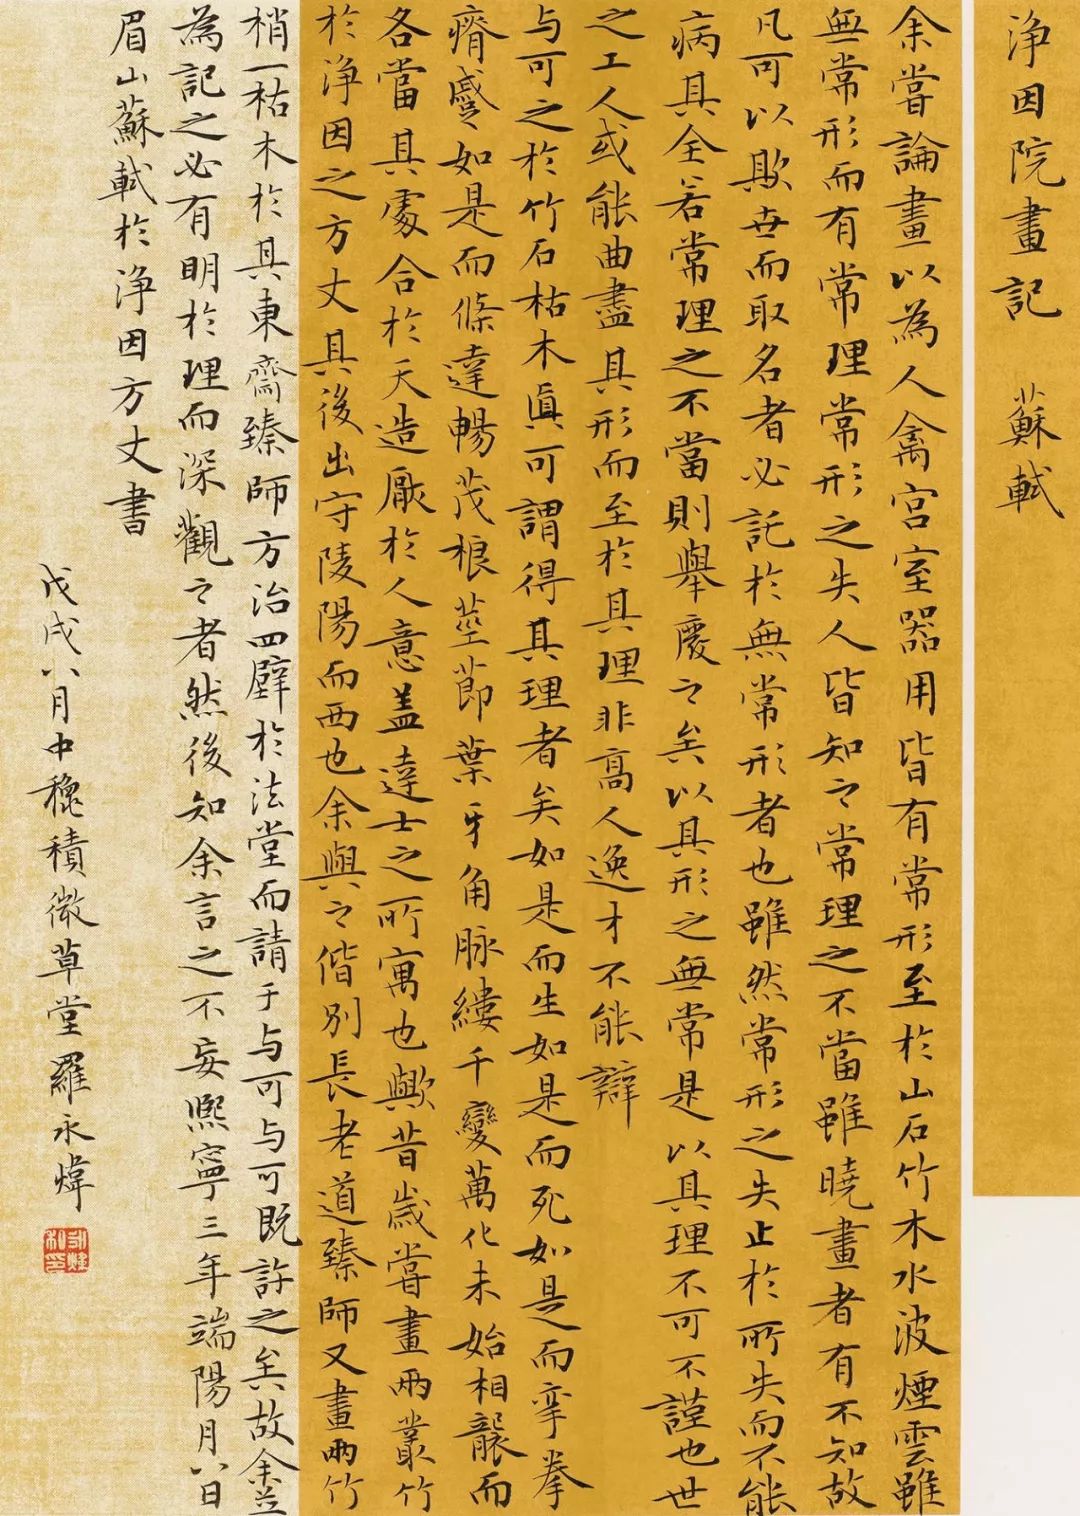 浄因院畫記　蘇軾
余嘗論畫以為人禽宮室器用皆有常形至於山石竹木水波煙雲雖
無常形而有常理常形之失人皆知之常理之不當雖曉畫者有不知故
凡可以欺世而取名者必託於無常形者也雖然常形之失止於所失而不能
病其全若常理之不當則舉廢之矣以其形之無常是以其理不可不謹也世
之工人或能曲盡其形而至於其理非高人逸才不能辯
与可之於竹石枯木真可謂得其理者矣如是而生如是而死如是而攣拳
瘠蹙如是而條達暢茂根莖節葉牙角脉縷千變萬化未始相襲而
各當其處合於天造厭於人意蓋達士之所寓也歟昔歲嘗畫兩叢竹
於浄因之方丈其後出守陵陽而西也余與之偕別長老道臻師又畫兩竹
梢一枯木於其東齋臻師方治四壁於法堂而請于与可与可既許之矣故余並
為記之必有明於理而深觀之者然後知余言之不妄熙寧三年端陽月八日
眉山蘇軾於浄因方丈書
戊戌八月中穐積微草堂羅永煒